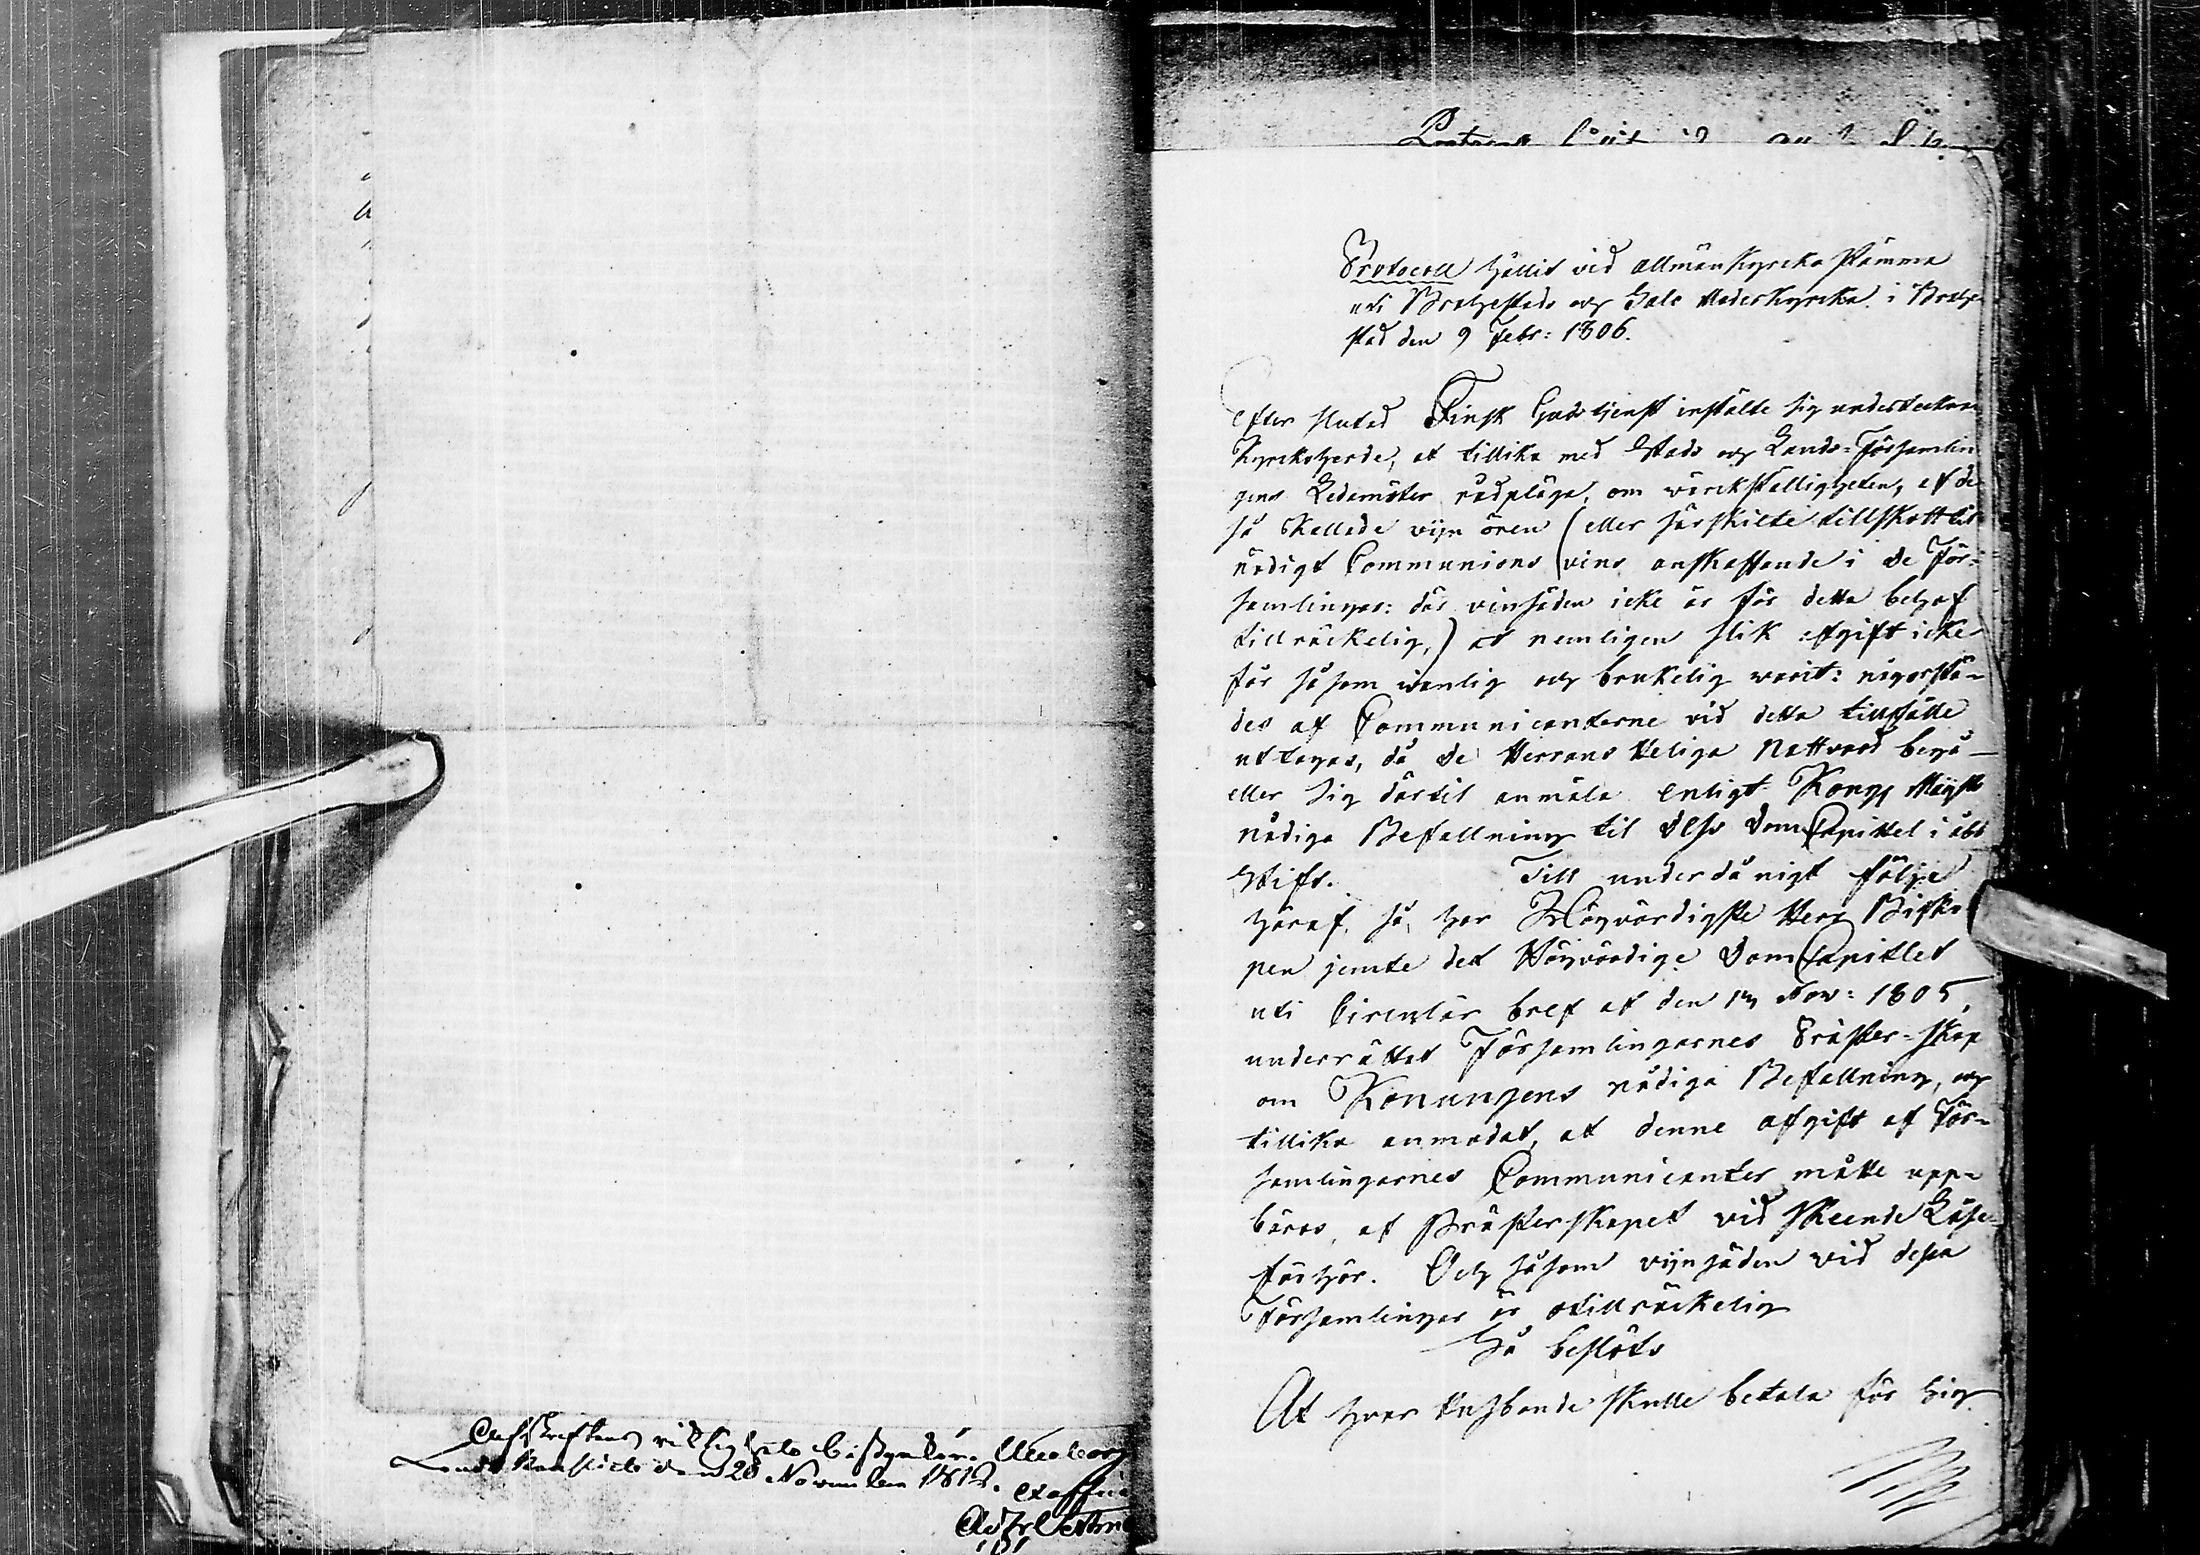 Afskriftens riktighet betygadt. Uleåborg
Lands Cansliet den 28 November 1812. Ex officio
Protocoll hållit vid allmän Kyrcko stämma
uti Brahestads och Salo Moderkyrcka i Brahe
stad den 9 Febr: 1806.
Efter slutad Finsk Gudstjenst instälte sig undertecknad
Kyrckoherde, at tillika med Stads och Lands-Församlin
gens Ledamöter rådpläga, om wärckställigheten, af de
så kallade vijn ören (eller särskilte tillskott til
nödigt Communions vins anskaffande i de För-
samlingar: där vinsäden icke är för detta behof
tillräckelig,) at nemligen slik afgift icke
får såsom wanlig och brukelig warit: någorstä-
des af Communicanterne vid detta tillfälle
uttagas, då de Herrans Heliga Nattvard begå
eller sig därtil anmäla enligt Kongl Maijts
nådiga Befallning til Dess DomCapittel i Åbo
Stift. Till underdånigt följe
häraf, så har Högvördigste Herr Bisko
pen jemte det Högvördige DomCapitlet
uti Circulär bref af den 13 Nov: 1805,
underrättat Församlingarnes Präster-skap
om Konungens nådiga Befallning, och
tillika anmodat, at denne afgift af För-
samlingarnes Communicanter måtte upp-
bäras, af Prästerskapet vid skeende Läse-
förhör. Och såsom vijnsäden vid dessa
Församlingar är otillräckelig
Så beslöts
At hvar Husbonde skulle betala för sig